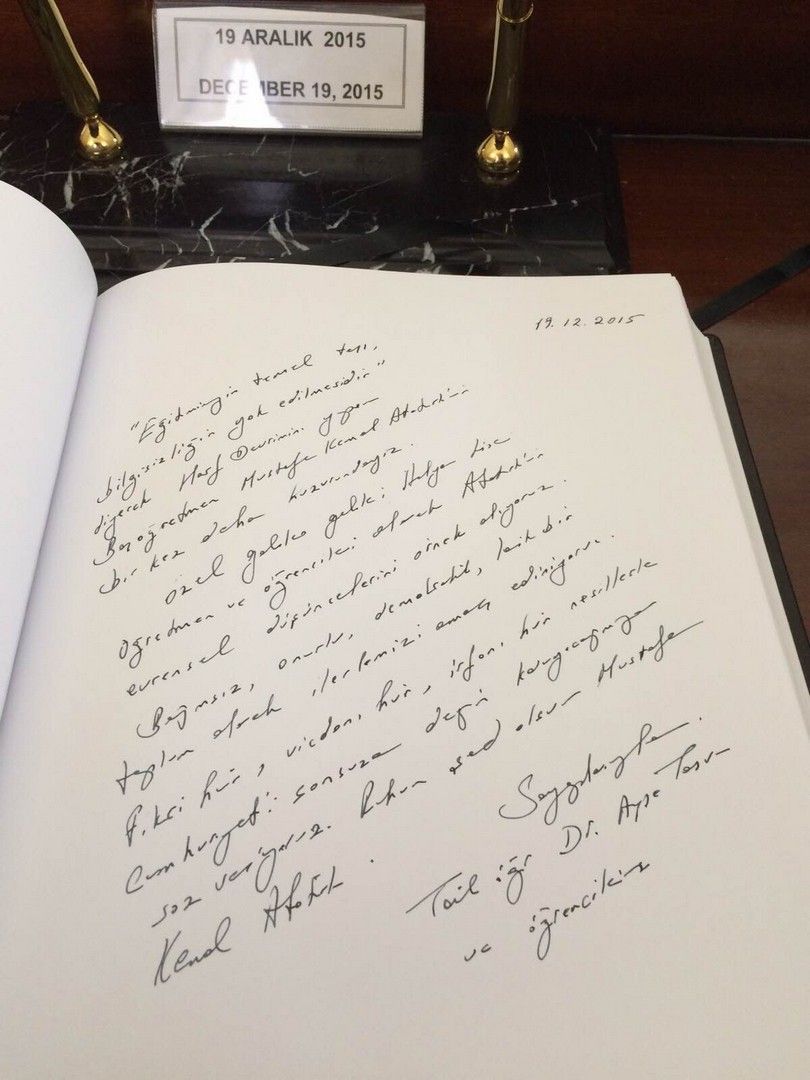 19 ARALIK 2015
DECEMBER 19, 2015
19.12.2015
"Eğitimizin temel taşı,
bilgisizliğin yok edilmesidir"
diyerek Harf Devrimini yapan
Başöğretmen Mustafa Kemal Atatürk'ün
bir kez daha huzurundayız.
Özel İtalyan Lise
öğretmen ve öğrencileri olarak Atatürk'ün
evrensel düşüncelerini örnek alıyoruz.
Bağımsız, onurlu, demokratik, laik bir
toplum olarak ilerlemizi amaç ediniyoruz.
Fikri hür, vicdanı hür, irfanı hür nesillerle
Cumhuriyet'i sonsuza değin koruyacağımıza
söz veriyoruz. Ruhun şad olsun Mustafa
Kemal Atatürk.
Saygılarımla.
Dr. Ayşe
ve öğrencileri